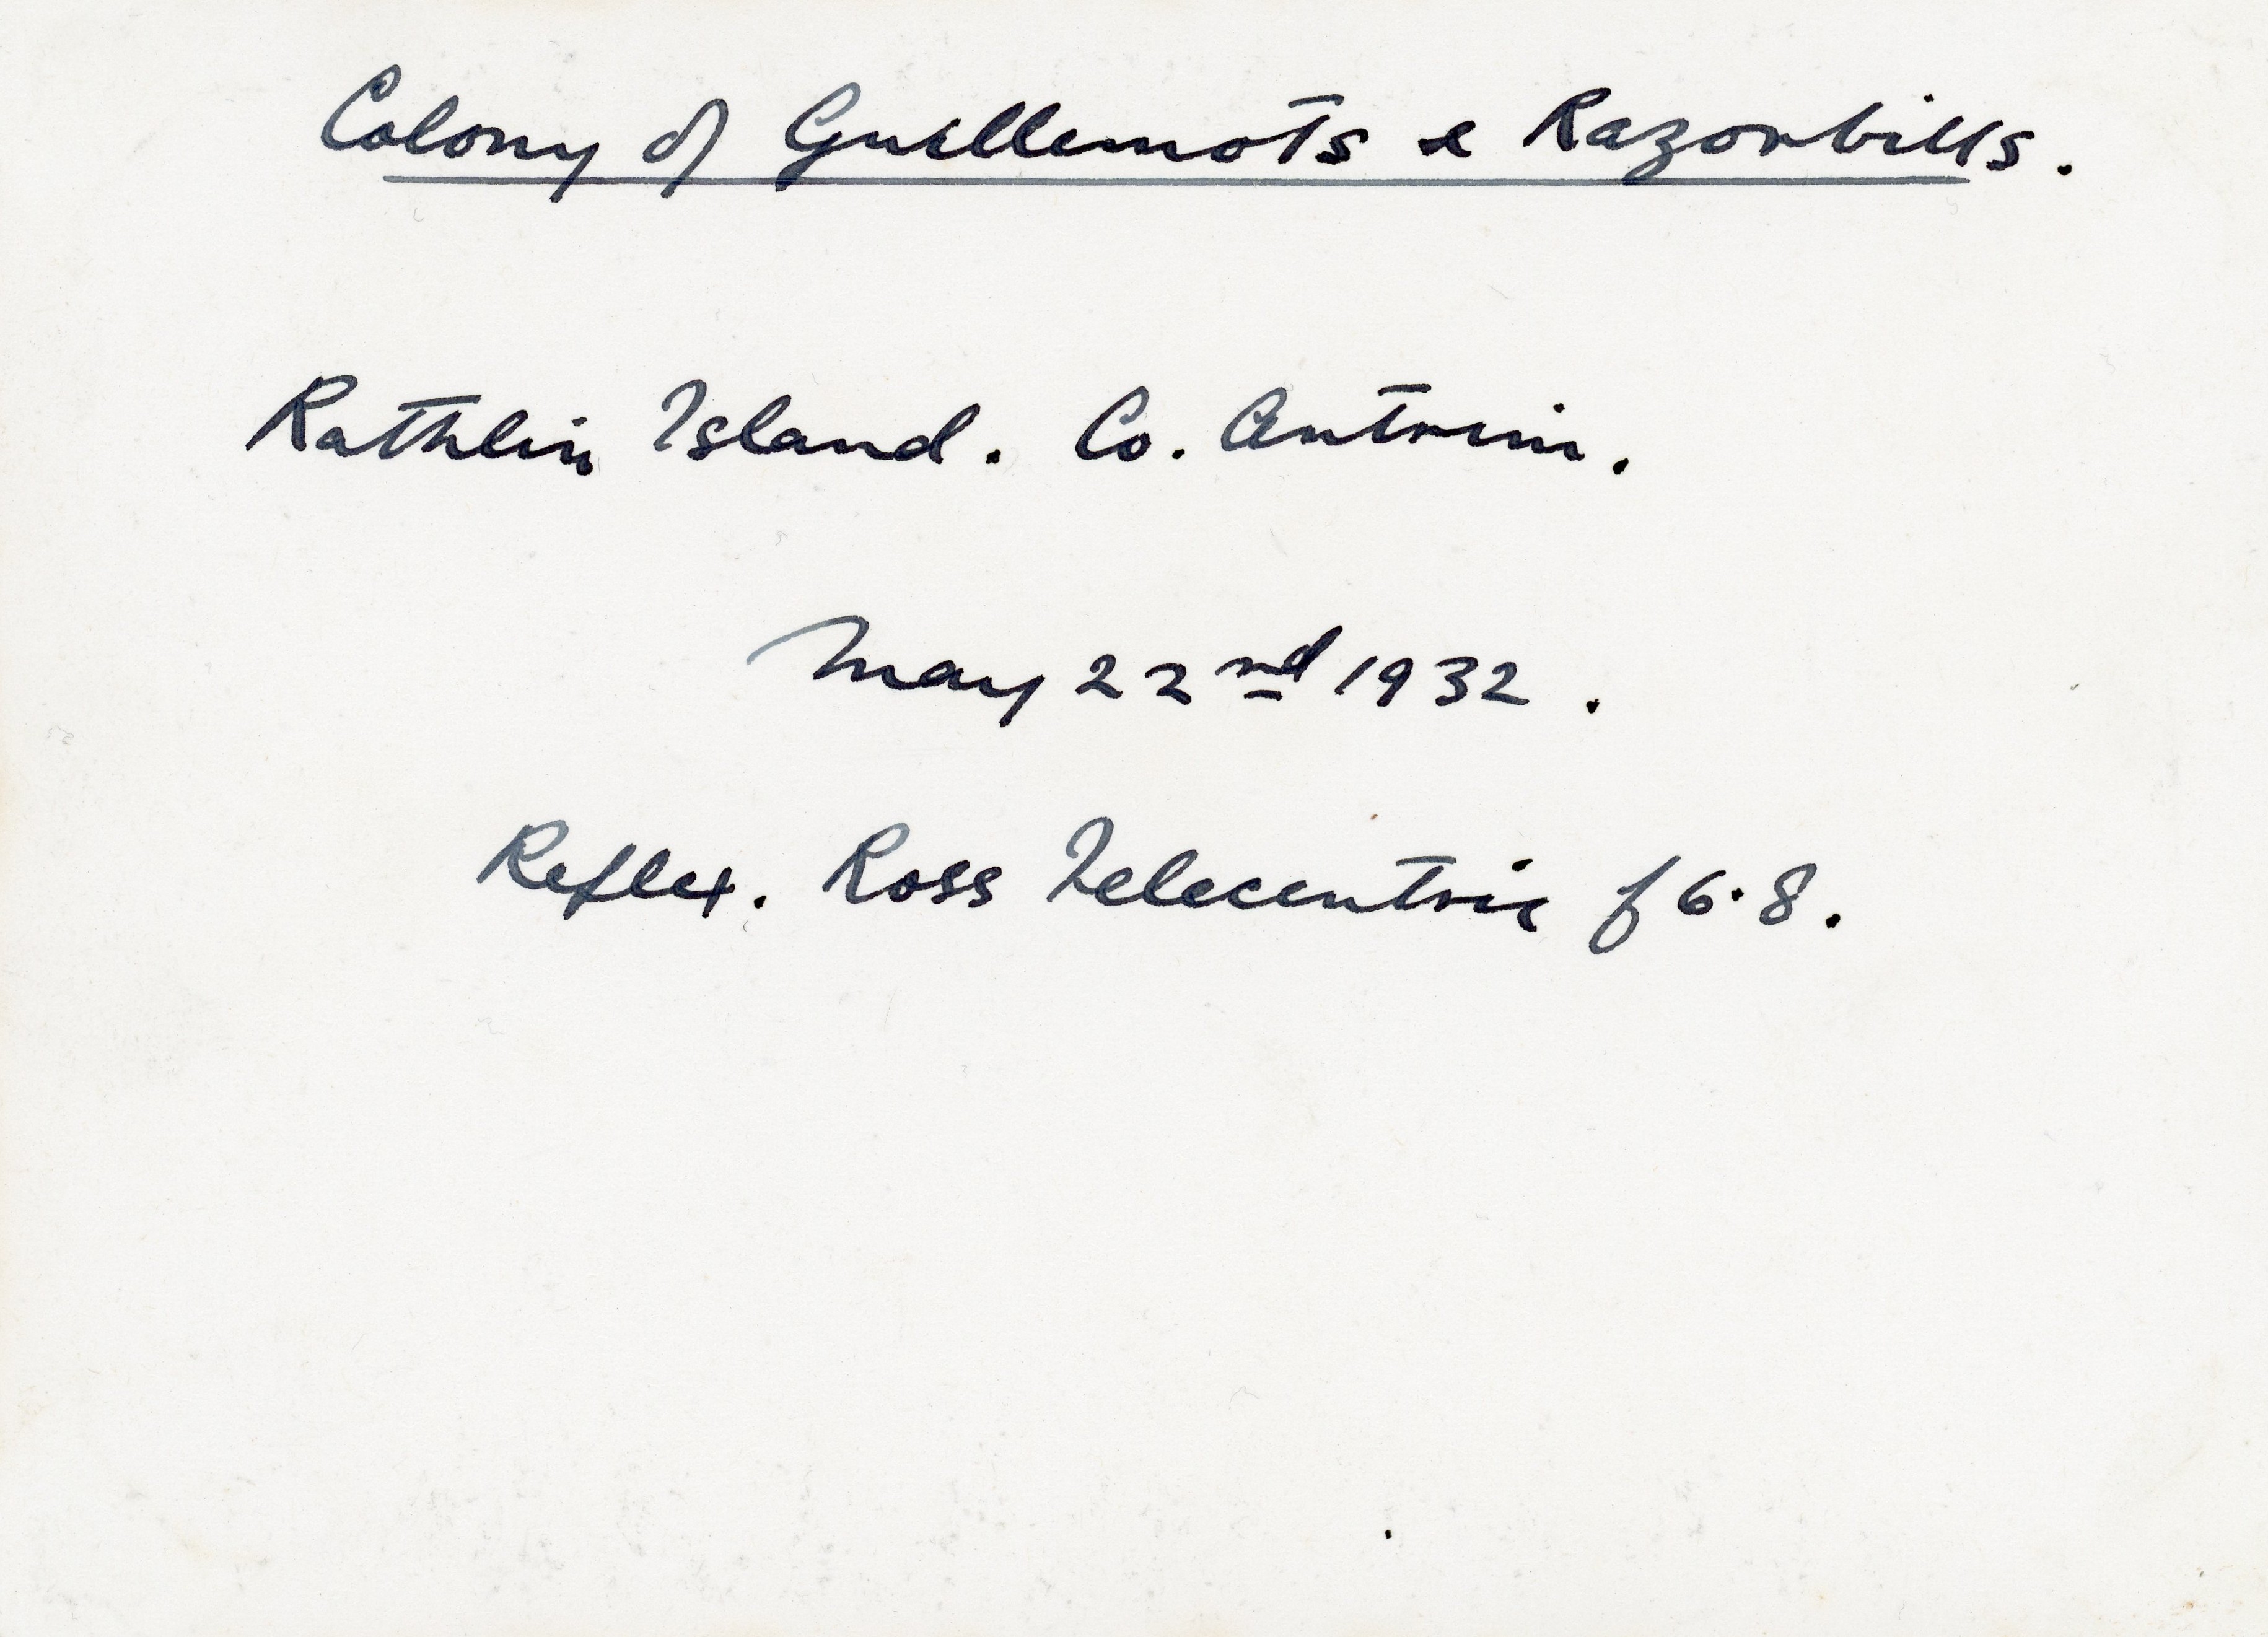 Colony of Guillemots & Razorbills.
Rathlin Island. Co. Antrim.
May 22nd 1932.
Reflex. Ross Telecentric f6·8.